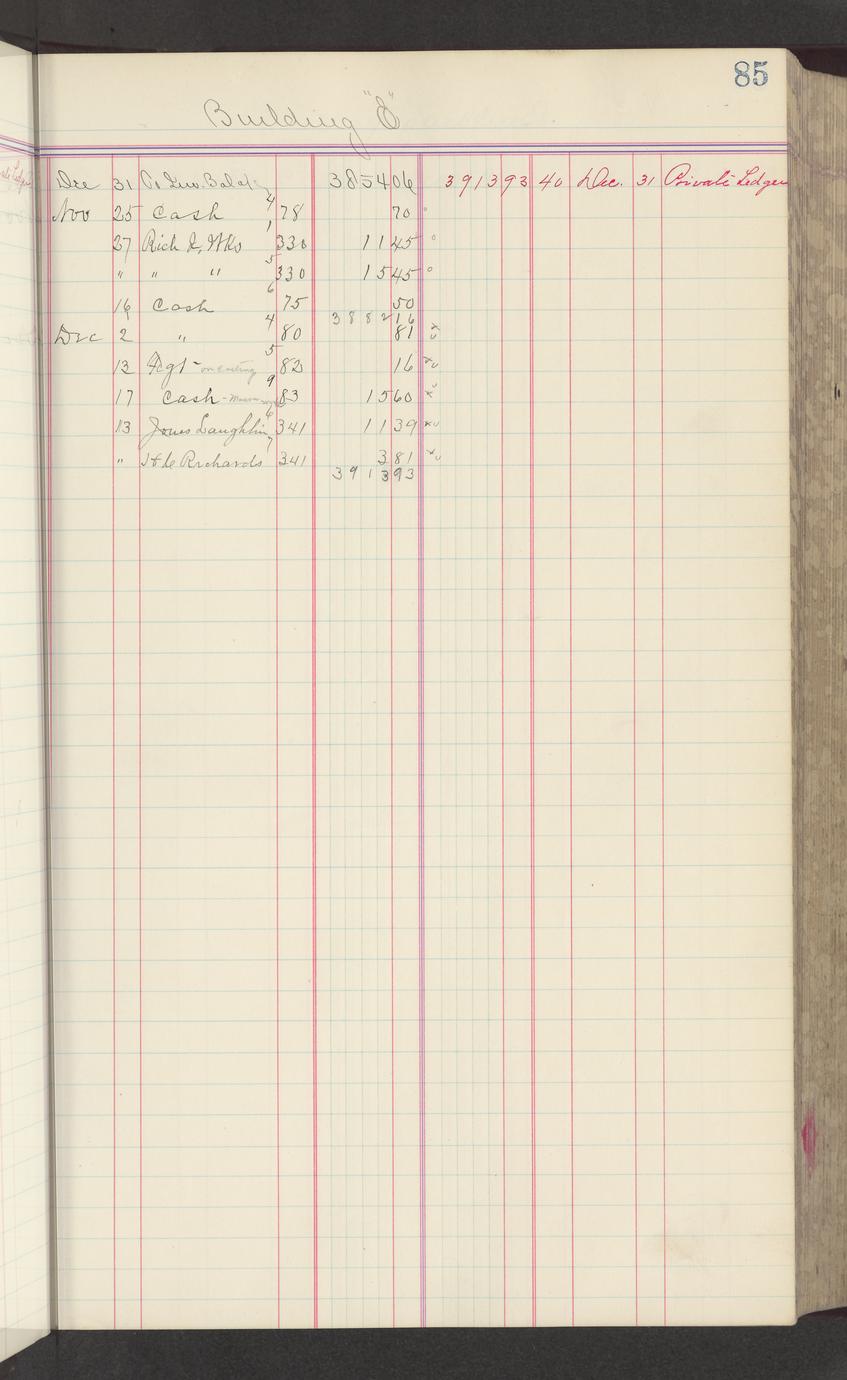 85
Building "E"
Dec 31 385406 391393 40 Dec. 31 Private Ledger
Nov 25 Cash 4 78 70
27 Rich 1 330 1145
" " " 5 330 1545
16 Cash 6 75 50
388216
Dec 2 " 4 80 81
13 5 82 16
17 Cash - 9 83 1560
13 Jones Laughlin 341 1139
" Richards 341 381
391393